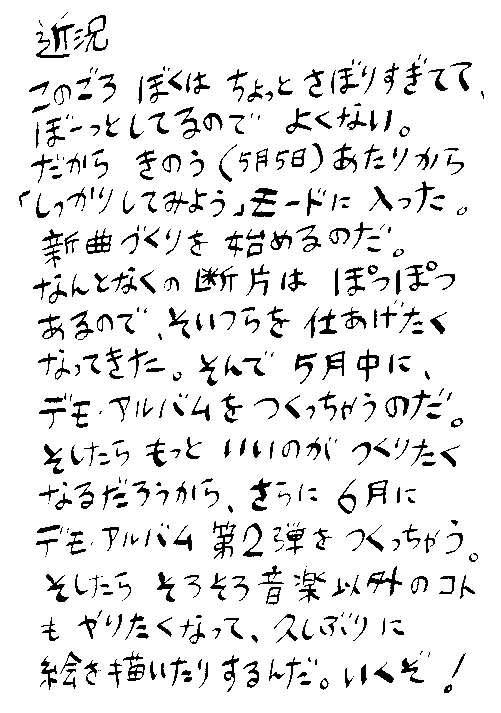 近況
このごろ ぼくは ちょっと さぼりすぎてて、
ぼーっとしてるので よくない。
だから きのう(5月5日)あたりから
「しっかりしてみよう」モードに 入った。
新曲づくりを 始めるのだ。
なんとなくの 断片は ぽつぽつ
あるので、そいつらを 仕あげたく
なってきた。そんで 5月中に、
デモ・アルバムを つくっちゃうのだ。
そしたら もっと いいのが つくりたく
なるだろうから、さらに 6月に
デモ・アルバム 第2弾を つくっちゃう。
そしたら そろそろ 音楽以外の コト
も やりたくなって、久しぶりに
絵を描いたり するんだ。いくぞ!